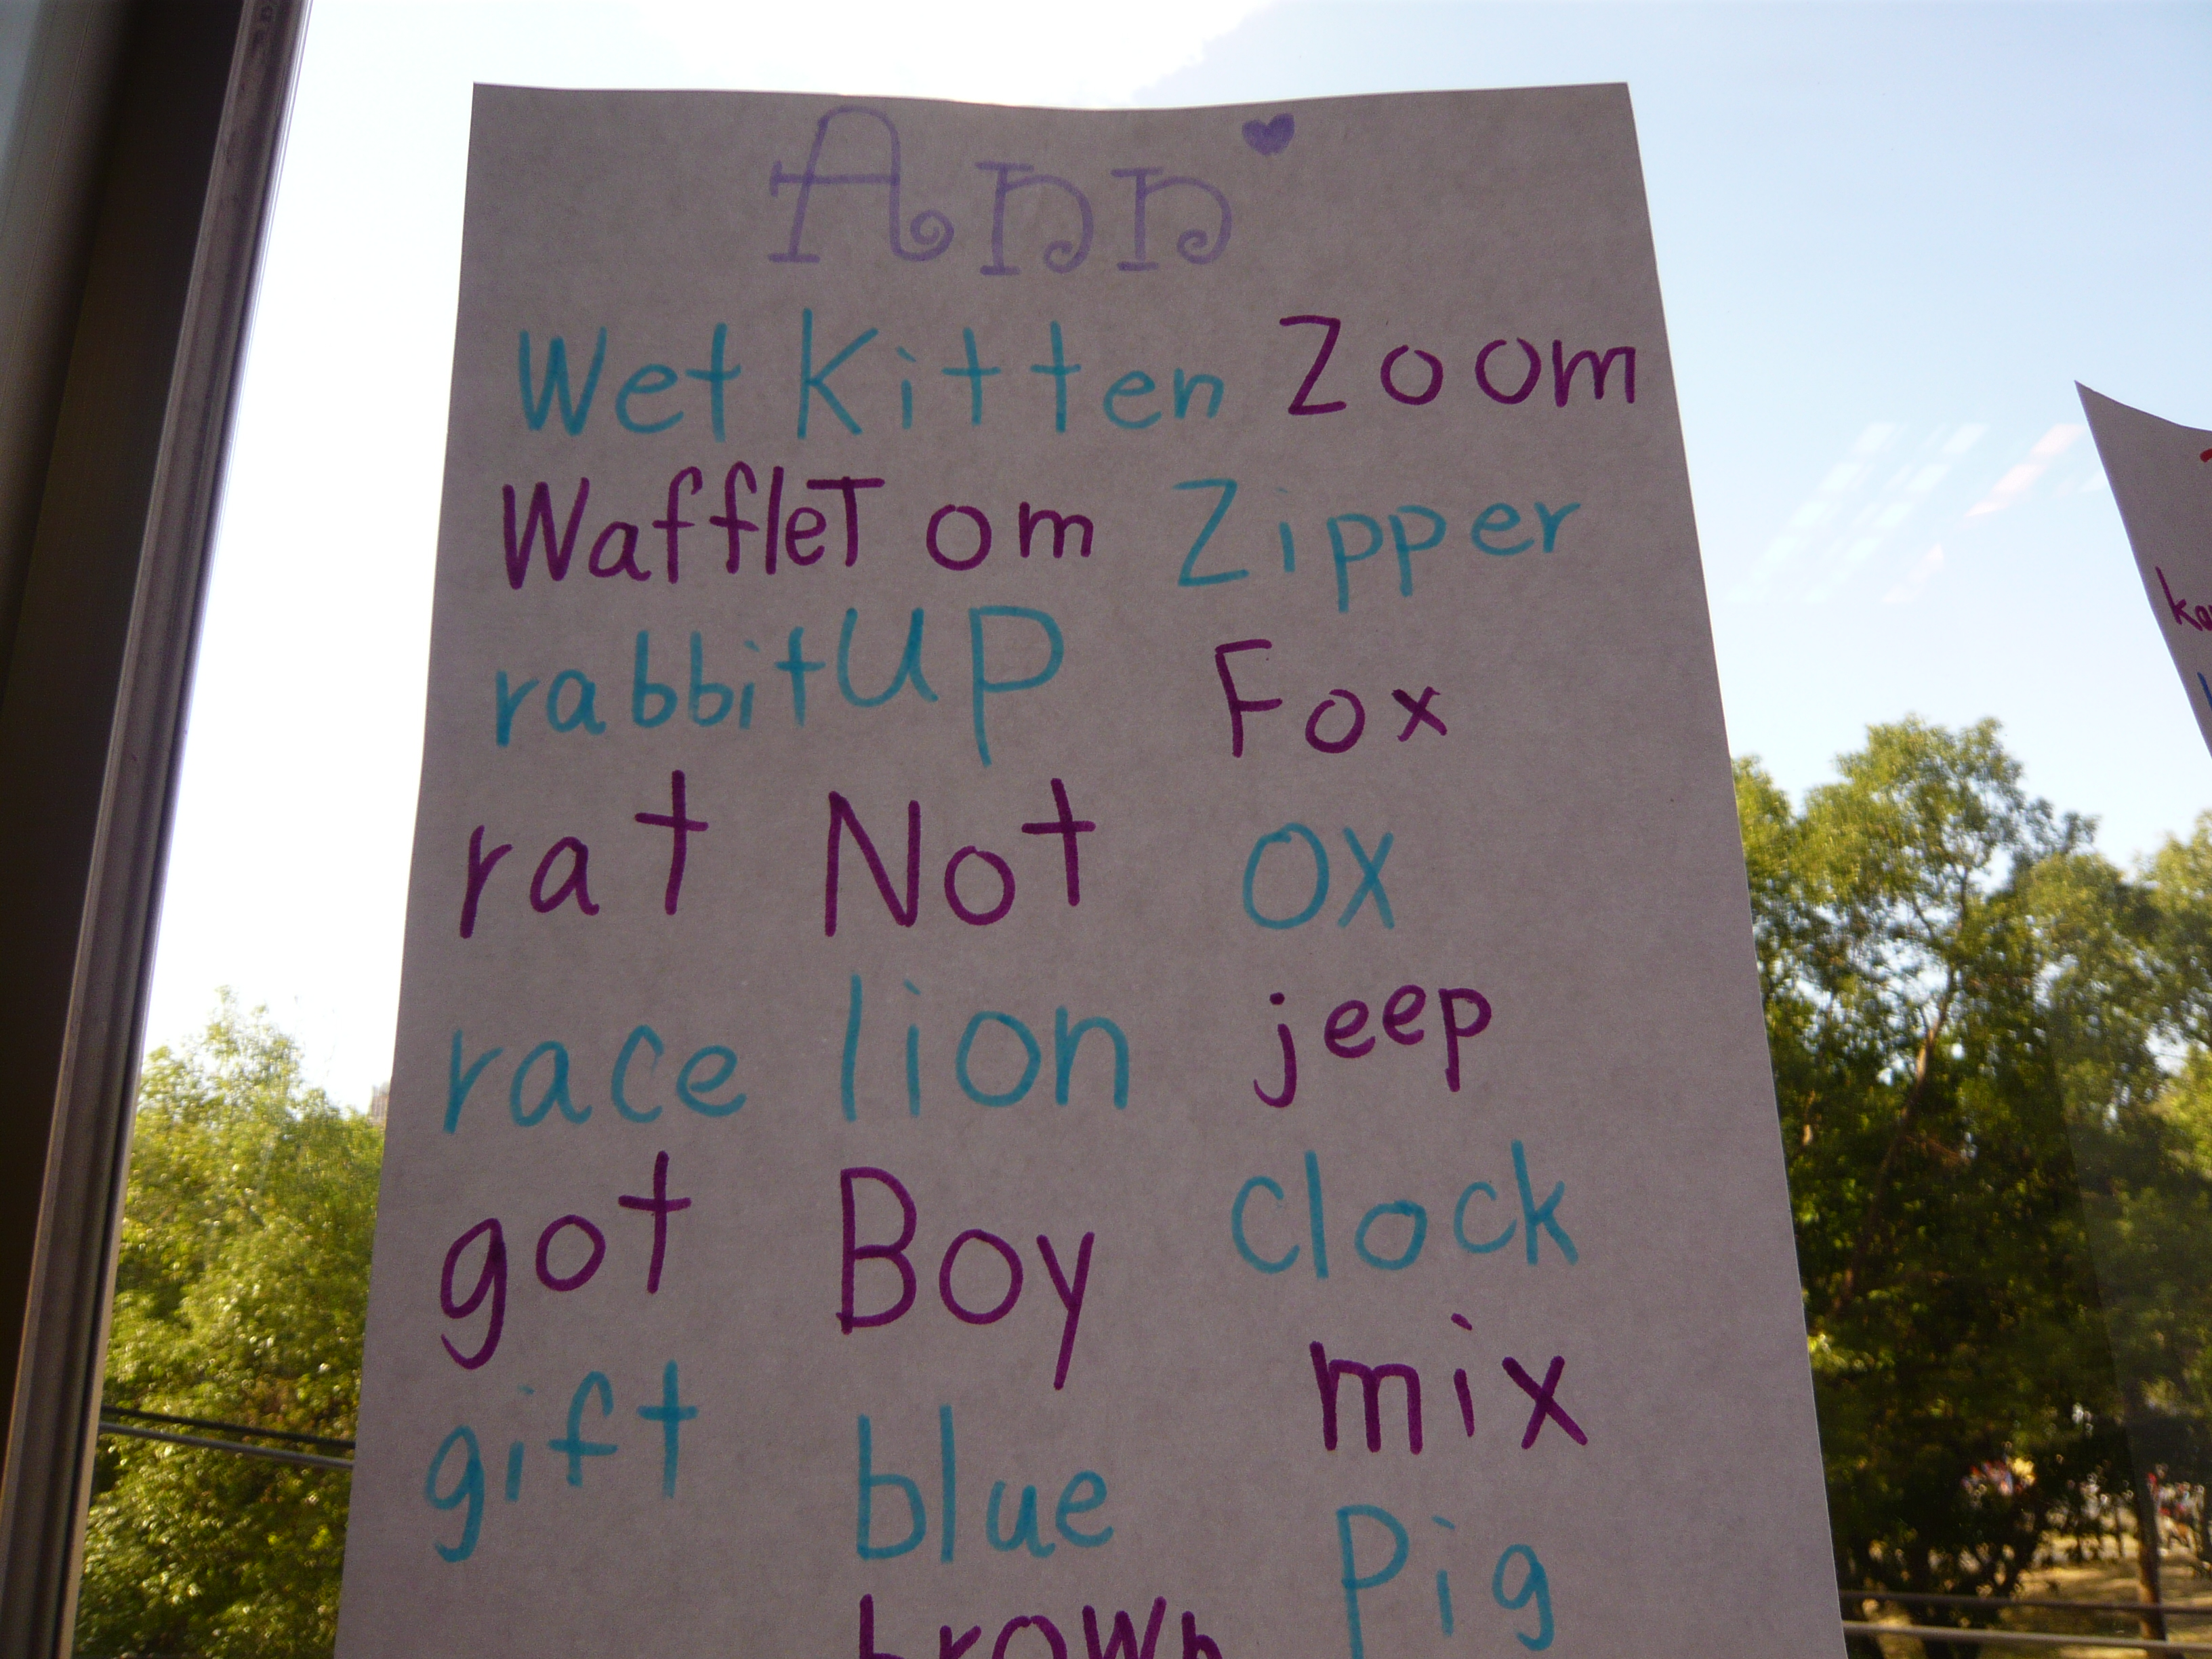 Ann
Wet Kitten Zoom
Waffle Tom Zipper
rabbit UP Fox
rat Not ox
race lion jeep
got Boy clock
gift blue mix
brown Pig